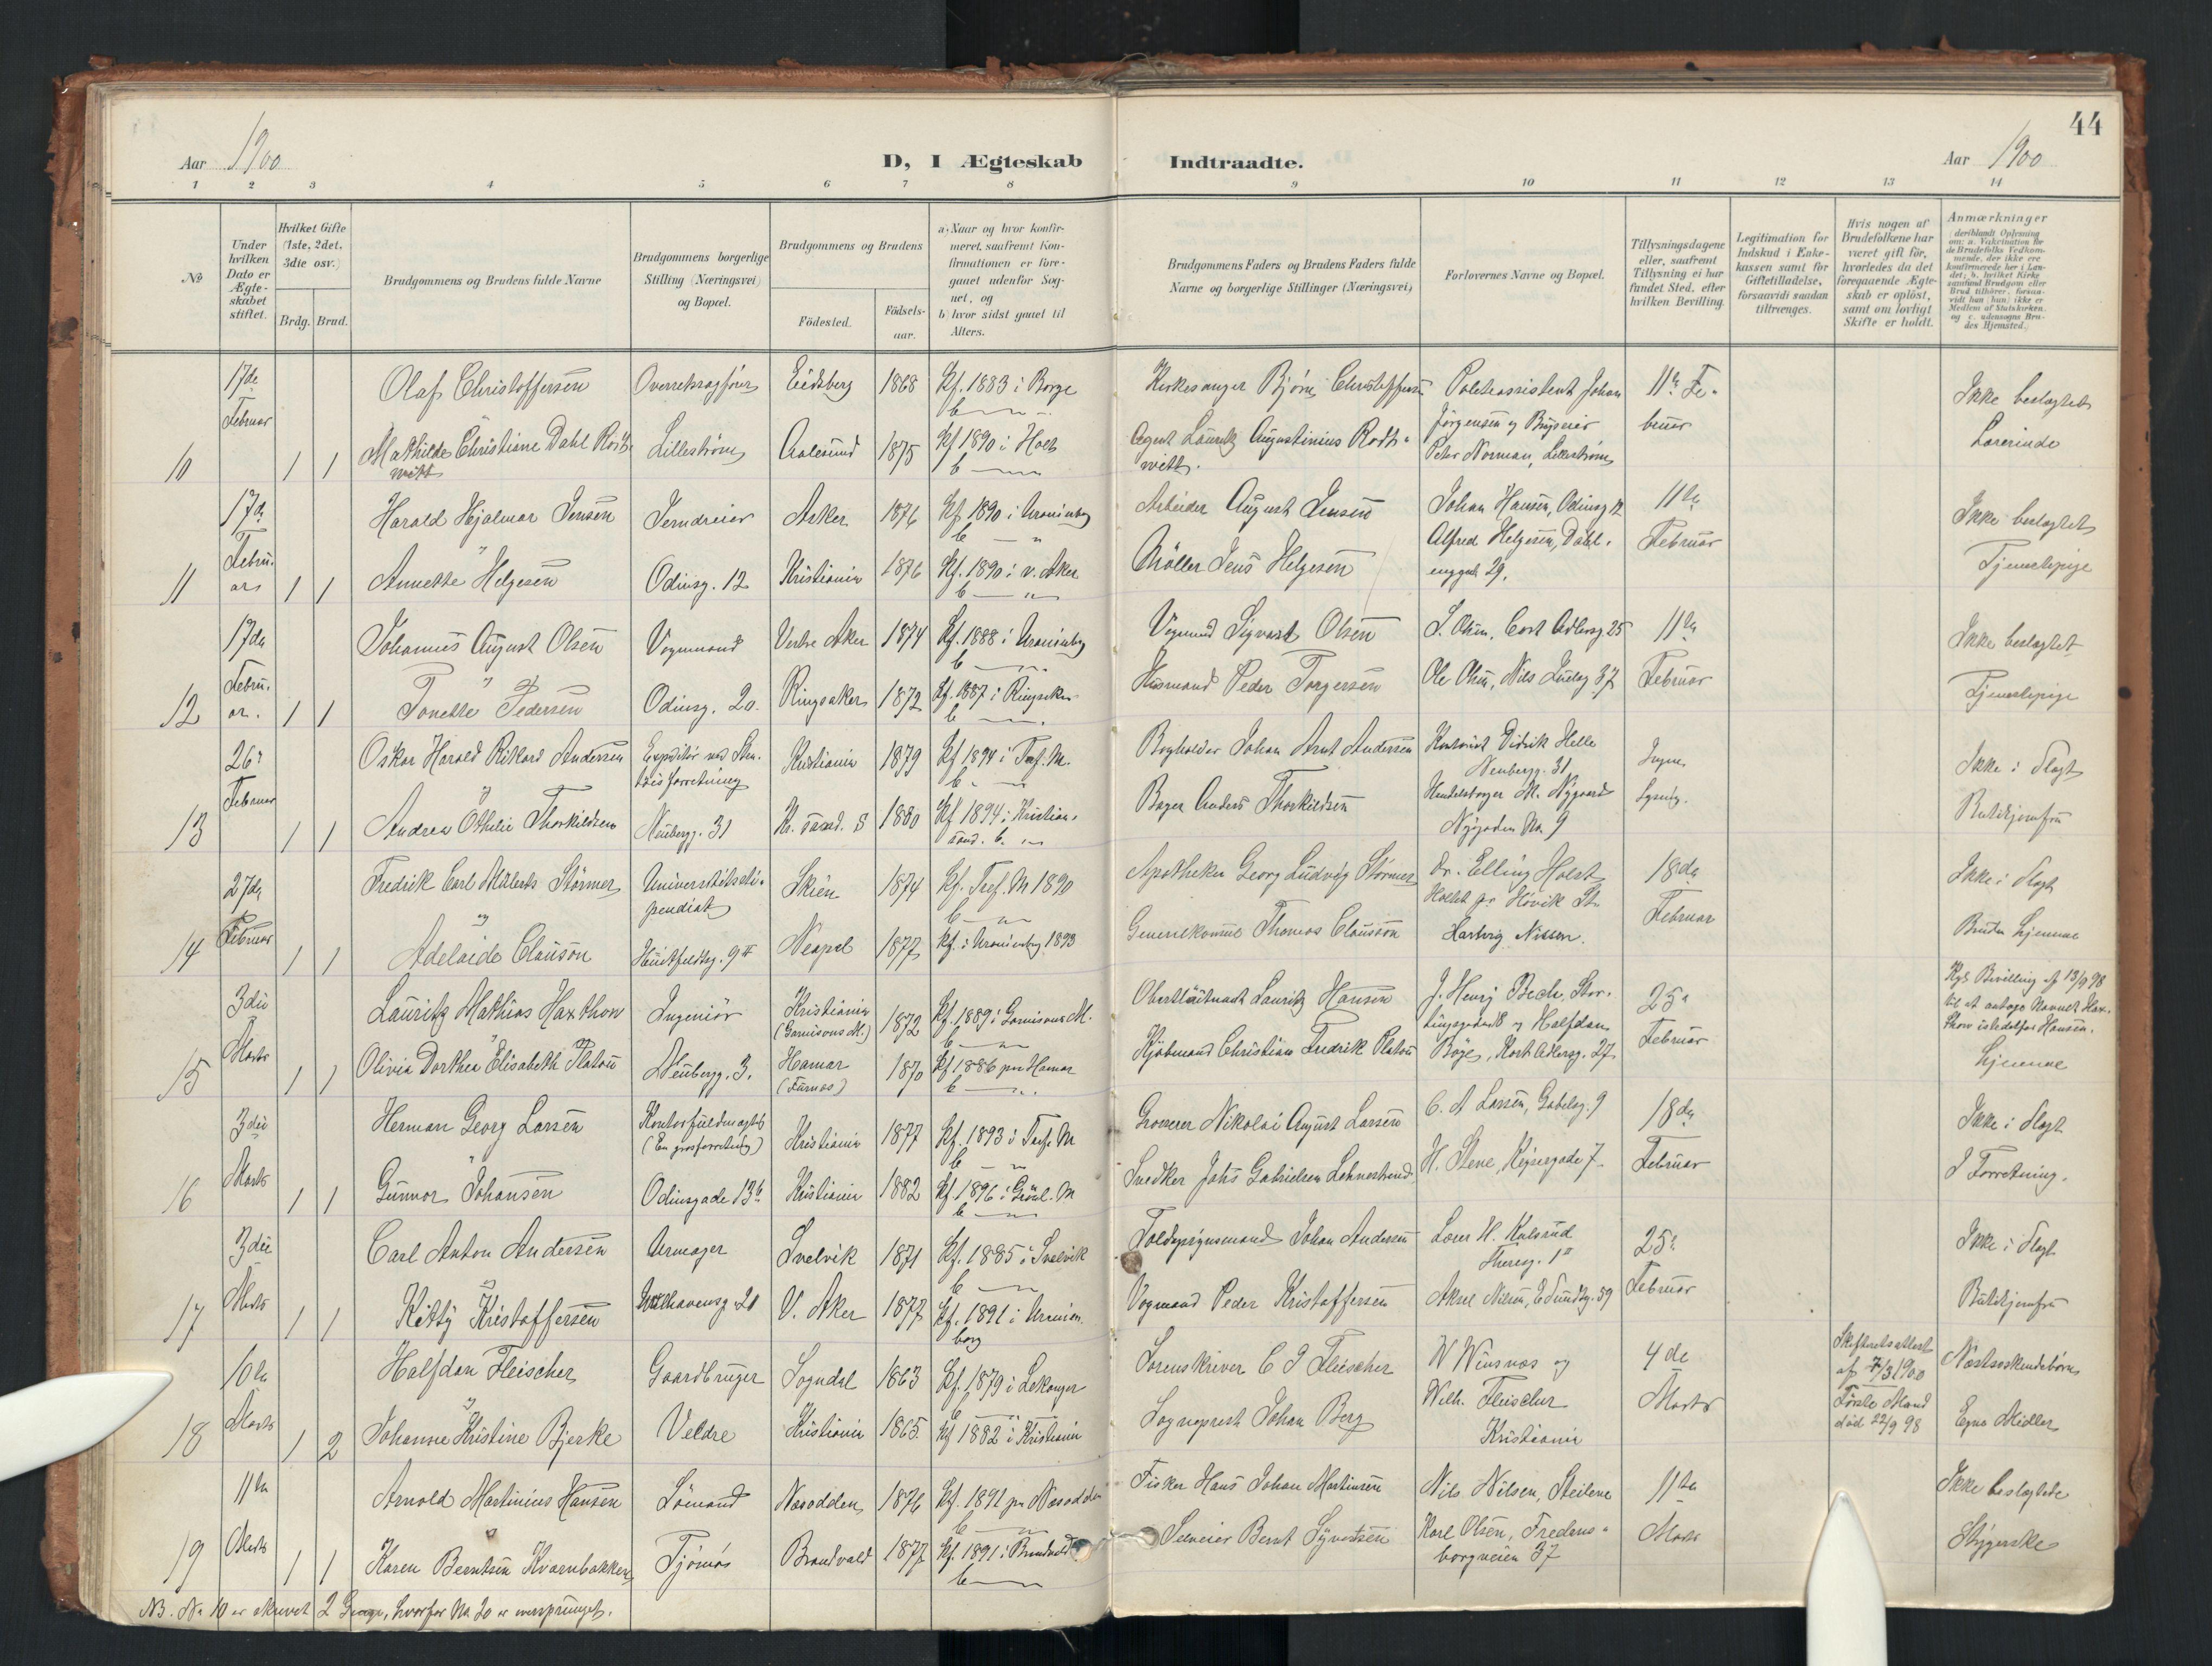 44
Aar 1900
D, I Ægteskab Indtraadte.
Aar 1900
1 2 3 4 5 6 7 8 9 10 11 12 13 14
No
Under hvilken Dato er Ægteskabet stiftet.
Hvilket Gifte (1ste, 2det, 3die osv.)
Brdg. Brud.
Brudgommens og Brudens fulde Navne
Brudgommens borgerlige Stilling (Næringsvei) og Bopæl.
Brudgommens og Brudens
Födested.
Födsels-aar.
a) Naar og hvor konfirmeret, saafremt Konfirmationen er foregaaet udenfor Sognet, og
b) hvor sidst gaaet til Alters.
Brudgommens Faders og Brudens Faders fulde Navne og borgerlige Stillinger (Næringsvei)
Forlovernes Navne og Bopæl.
Tillysningsdagene eller, saafremt Tillysning ei har fundet Sted, efter hvilken Bevilling.
Legitimation for Indskud i Enkekassen samt for Giftetilladelse, forsaavidt saadan tiltrænges.
Hvis nogen af Brudefolkene har været gift för, hvorledes da det foregaaende Ægteskab er oplöst, samt om lovligt Skifte er holdt.
Anmærkninger (deriblandt Oplysning om: a. Vakcination for de Brudefolks Vedkommende, der ikke ere konfirmerede her i Landet; b. hvilket Kirkesamfund Brudgom eller Brud tilhörer, forsaavidt han (hun) ikke er Medlem af Statskirken, og c. udensogns Brudes Hjemsted.)
17de Olaf Christoffersen Overretssagförer Eidsberg 1868 Kf. 1883 i Borge Kirkesanger Björn Christoffersen Politiassistent Johan 11te Fe- Ikke beslægtet
Februar Jörgensen og Bryggeier bruar
10 1 1 Mathilde Christiane Dahl Rost- Lilleström Aalesund 1875 Kf 1890 i Holt Agent Lauritz Augustinius Rodt- Peter Norman, Lilleström Lærerinde
witt witt.
17de Harald Hjalmar Jensen Jerndreier Asker 1876 Kf. 1890 i Uranienborg Arbeider August Jensen Johan Hansen, Odinsg 12 11te Ikke beslægtet
Februar Alfred Helgesen, Dahl- Februar
11 1 1 Annette Helgesen Odinsg. 12 Kristiania 1876 Kf. 1890 i v. Aker Möller Jens Helgesen enggd 29. Tjenestepige
17de Johannes August Olsen Vognmand Vestre Aker 1874 Kf. 1888 i Uranienborg Vognmand Sigvart Olsen S. Olsen, Cort Adlersg 25 11te Ikke beslægtet
Februar
12 1 1 Tonette Pedersen Odinsg. 20. Ringsaker 1872 Kf. 1887 i Ringsaker Husmand Peder Torgersen Ole Olsen, Nils Juelsg 37 Februar Tjenestepige
26de Oskar Harald Rikard Andersen Expeditör Kristiania 1879 Kf 1894 i Tref. M. Bogholder Johan Arnt Andersen Kontorist Didrik Helle Ingen Ikke i Slægt
Februar forretning Neubergg. 31 Lysning.
13 1 1 Andrea Othilie Thorkildsen Neubergg. 31 Kr. sand. S 1880 Kf 1894 i Kristian- Bager Anders Thorkildsen Handelsborger M. Nygaard Butikjomfru
sand. Nygaden No 9
27de Fredrik Carl Mülertz Störmer Universitetssti- Skien 1874 Kf. Tref. M 1890 Apotheker Georg Ludvig Störmer Dr. Elling Holst 18de Ikke i Slægt
Februar og pendiat Holtet pr Hövik St.
14 1 1 Adelaide Clauson Huitfeldtsg. 9 II Neapel 1877 Kf. i Uranienborg 1893 Generalkonsul Thomas Clauson Hartvig Nissen. Februar Bruden hjemme
3die Lauritz Mathias Haxthow Ingeniör Kristiania 1872 Kf. 1889 i Garnisons M. Oberstlöitnant Lauritz Hansen J. Henrj Bech, Stor- 25de Kgl. Bevilling af 13/9 98
(Garnisons M.) tingsgaden 8 og Halfdan til at antage Navnet Hax-
Marts Februar thow istedetfor Hansen.
15 1 1 Olivia Dorthea Elisabeth Platou Neubergg. 3. Hamar (Furnæs) 1870 Kf 1886 paa Hamar Kjöbmand Christian Fredrik Platou Böye, Kort Adlersg. 27 hjemme
3die Herman Georg Larsen Kontorfuldmægtig (En grosforretning) Kristiania 1877 Kf. 1893 i Tref. M Grosserer Nikolai August Larsen C. A Larsen, Gabelsg. 9 18de Ikke i Slægt
Marts
16 1 1 Gunvor Johansen Odinsgade 13b Kristiania 1882 Kf. 1896 i Grönl. M Snedker Johs Gabrielsen H. Stene, Keysersgade 7 Februar I Forretning.
3die Carl Anton Andersen Urmager Svelvik 1871 Kf. 1885 i Svelvik Toldopsynsmand Johan Andersen Lærer H. Kulsrud 25de Ikke i Slægt
Theresg. 1 II
17 Marts 1 1 Kitty Kristoffersen Welhavensg. 21 V. Aker 1877 Kf. 1891 i Uranien- Vognmand Peder Kristoffersen Aksel Nilsen, E Sundtsg. 39 Februar Butikjomfru
borg
10de Halfdan Fleischer Gaardbruger Sogndal 1863 Kf. 1879 i Lekanger Sorenskriver C I Fleischer W Winsnes og 4de Skifteretsattest Næstsöskendebörn
Wilh. Fleischer af 7/3 1900
18 Marts 1 2 Johanne Kristine Bjerke Veldre Kristiania 1865 Kf 1882 i Kristiania Sogneprest Johan Berg Kristiania Marts Förste Mand Egne Midler
död 22/9 98
11te Arnold Martinius Hansen Sömand Næsodden 1876 Kf. 1891 paa Næsodden Fisker Hans Johan Martinsen Nils Nilsen, Steilene 11te Ikke beslægtede
Marts
19 1 1 Karen Berntsen Kvarnbakken Tjömös Brandvold 1877 Kf. 1891 i Brandvold Selveier Bernt Syvertsen Karl Olsen, Fredens- Marts Strygerske
borgveien 37
NB. No 10 er skrevet 2 Gange, hvorfor No 20 er oversprunget.